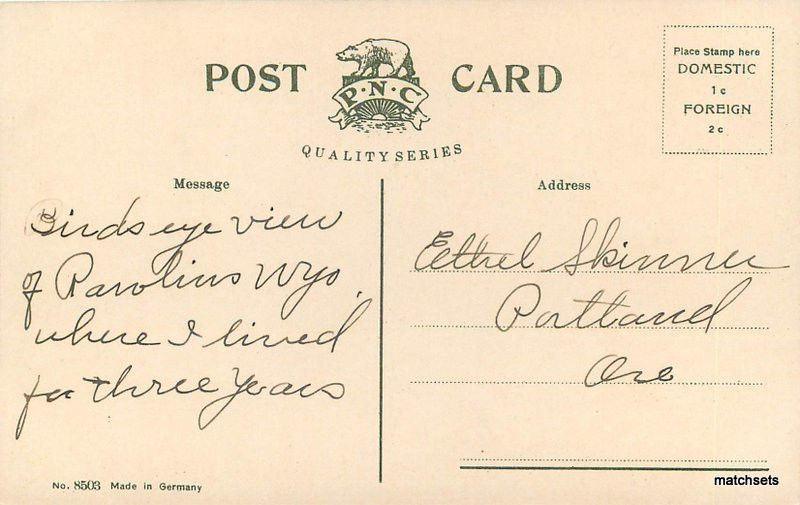 POST CARD
P·N·C
QUALITY SERIES
Place Stamp here
DOMESTIC
1c
FOREIGN
2c
Message
Birdseye view
of Rawlins Wyo.
where I lived
for three years
Address
Eethel Skinner
Portland
Ore
No. 8503 Made in Germany
matchsets